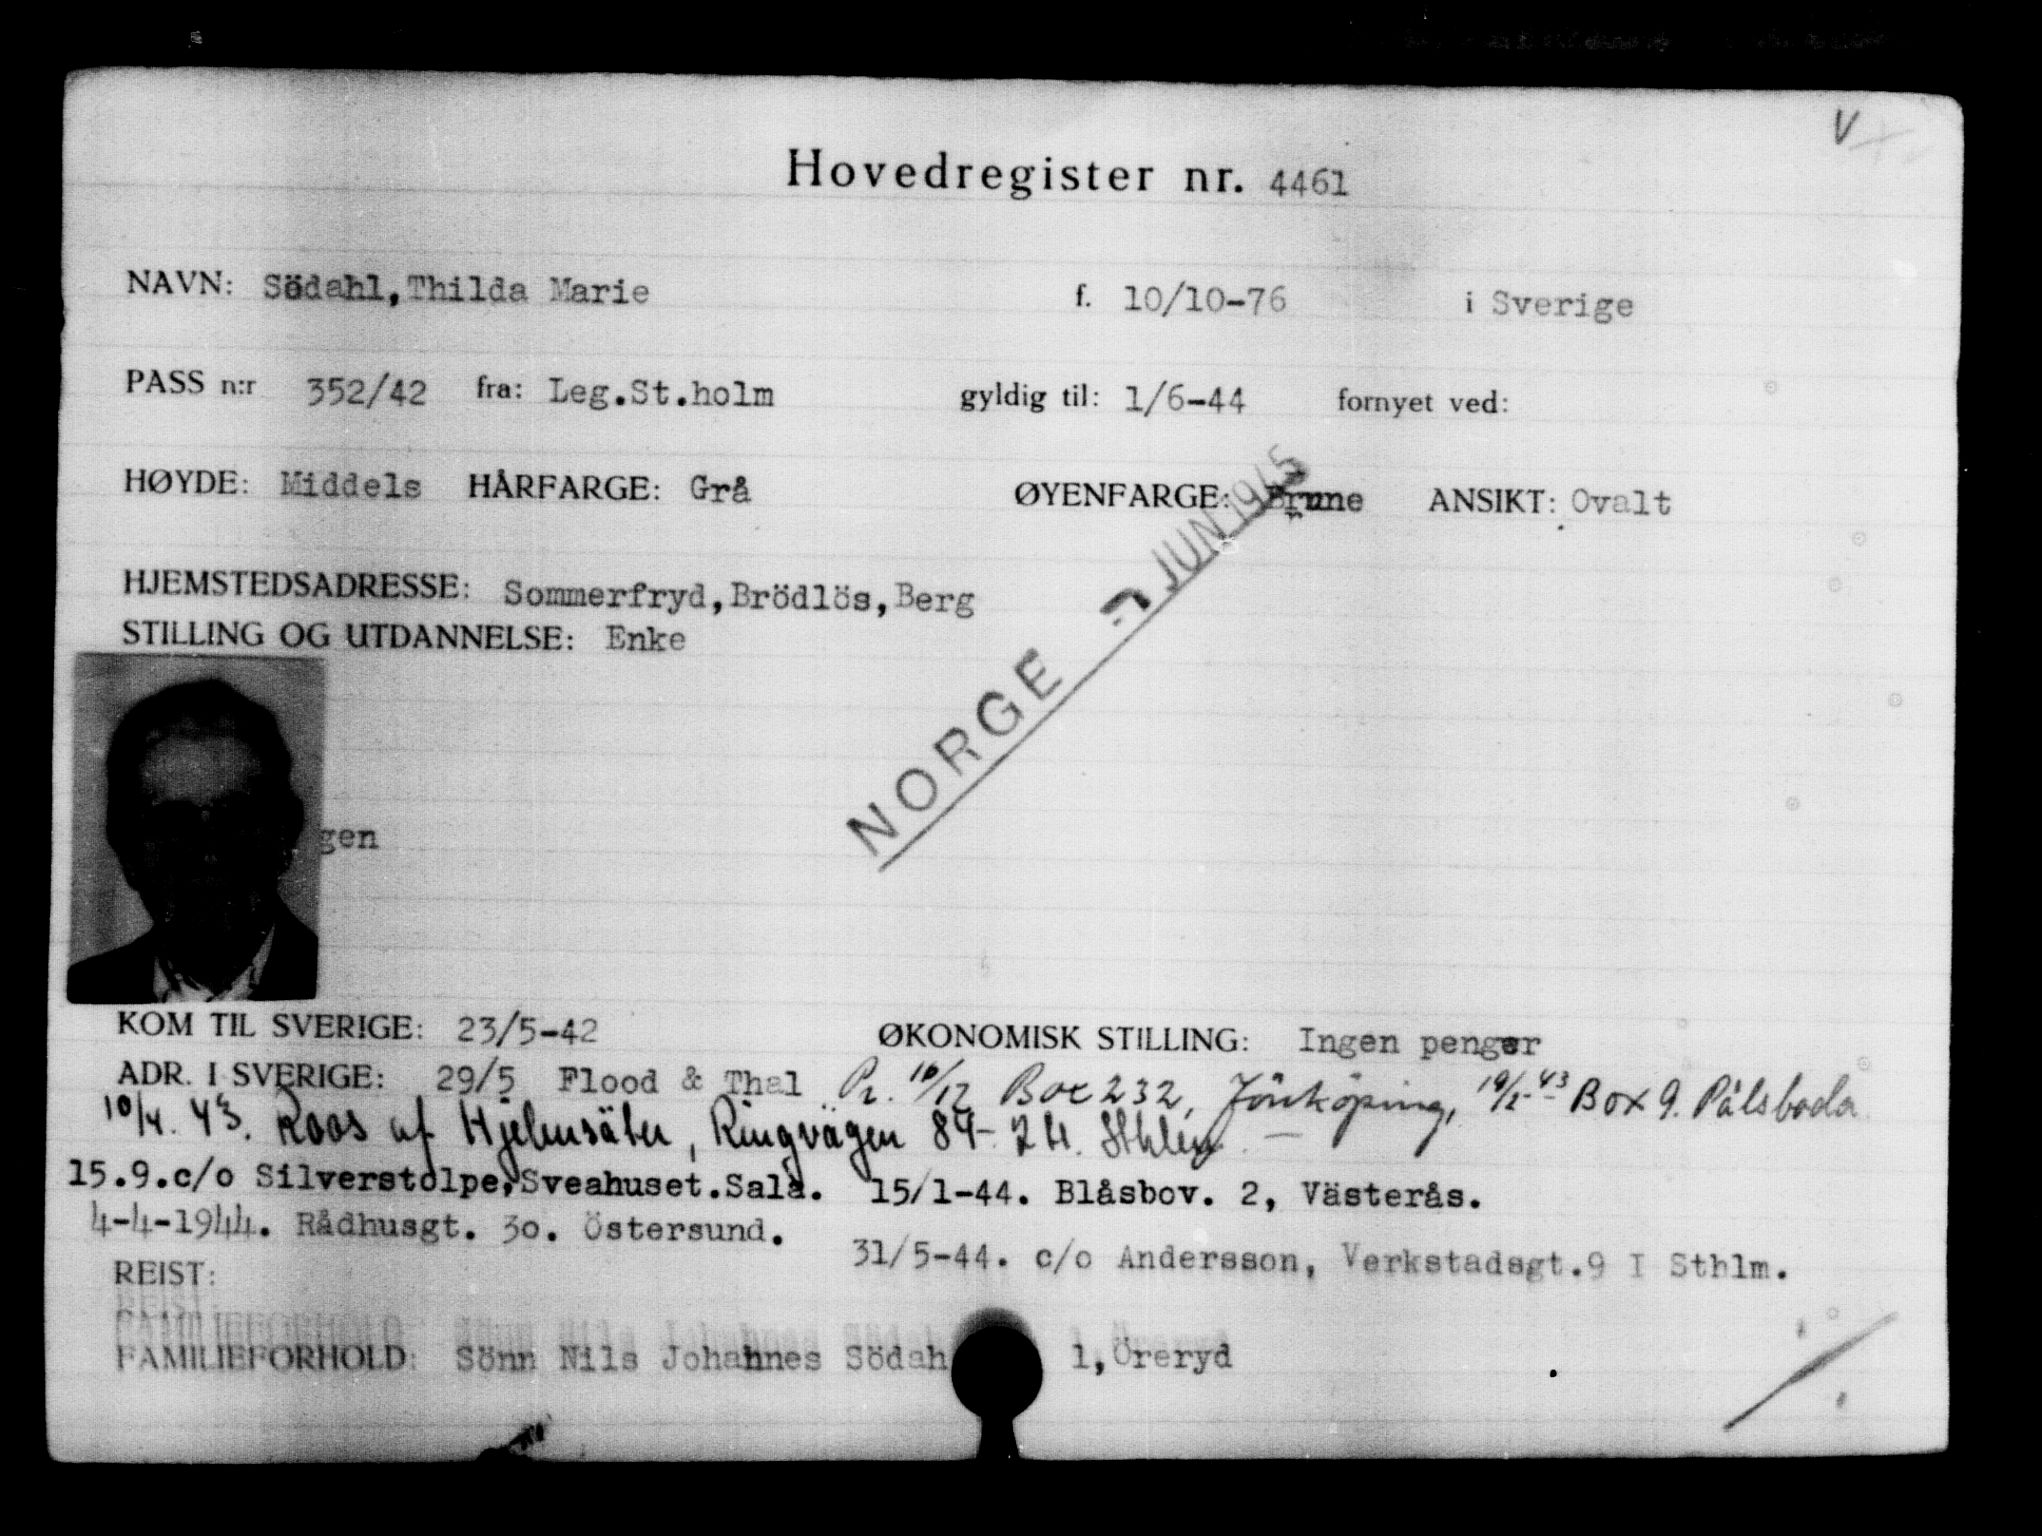 V
Hovedregister nr. 4461
NAVN: Södahl, Thilda Marie f. 10/10-76 i Sverige
PASS n:r 352/42 fra: Leg.St.holm gyldig til: 1/6-44 fornyet ved:
HØYDE: Middels HÅRFARGE: Grå ØYENFARGE: Brune ANSIKT: Ovalt
HJEMSTEDSADRESSE: Sommerfryd, Brödlös, Berg
STILLING OG UTDANNELSE: Enke
NORGE JUN 1945
gen
KOM TIL SVERIGE: 23/5-42 ØKONOMISK STILLING: Ingen penger
ADR. I SVERIGE: 29/5 Flood & Thal Pr. 10/12 Box 232, Jönköping, 19/2-43 Box 9. Pålsboda
10/4. 43. Roos af Hjelmsäter, Ringvägen 84 Sthlm
15.9.c/o Silverstolpe, Sveahuset.Sala. 15/1-44. Blåsbov. 2, Västerås.
4-4-1944. Rådhusgt. 30. Östersund.
31/5-44. c/o Andersson, Verkstadsgt.9 I Sthlm.
REIST:
FAMILIEFORHOLD: Sönn Nils Johannes Södah 1, Öreryd